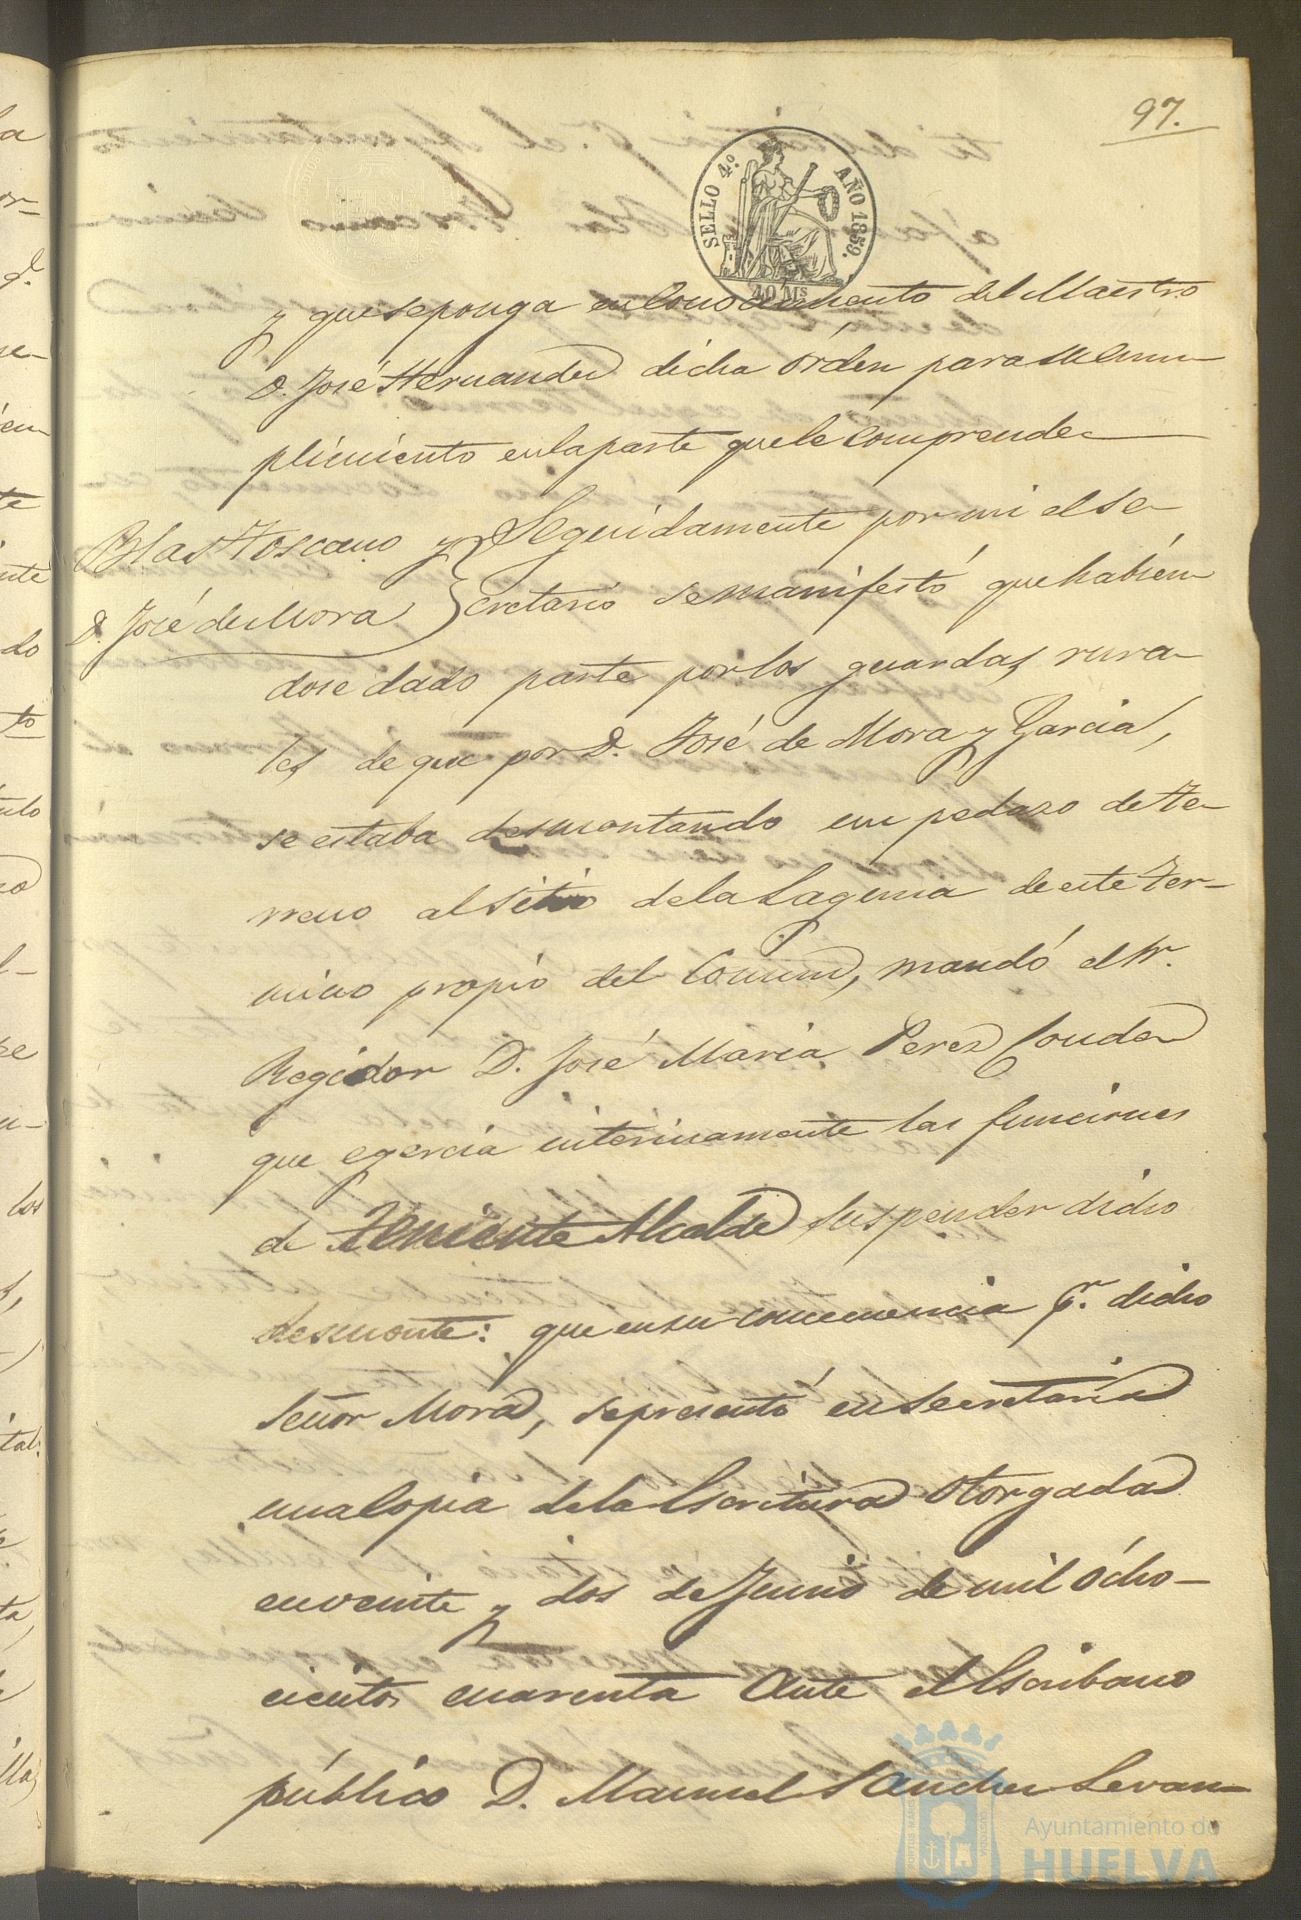 97.
SELLO 4.º AÑO 1859.
40 Ms
y que se ponga en conocimiento del Maestro
D. José Hernandez dicha órden para su cum-
plimiento en la parte que le comprende
Blas Toscano y
D. José de Mora
Seguidamente por mi el Se-
cretario se manifestó que habien-
dose dado parte por los guardas rura-
les de que por D. José de Mora y Garcia,
se estaba desmontando un pedazo de te-
rreno al sitio de la Laguna de este ter-
mino propio del Comun, mandó el Sr.
Regidor D. José Maria Perez Conde
que egercia interinamente las funciones
de Teniente Alcalde suspender dicho
desmonte: que en su consecuencia pr. dicho
Señor Mora, se presentó en Secretaria
una Copia de la Escritura otorgada
en veinte y dos de Junio de mil ocho-
cientos cuarenta ante el Escribano
público D. Manuel Sanchez Levan-
Ayuntamiento de
HUELVA